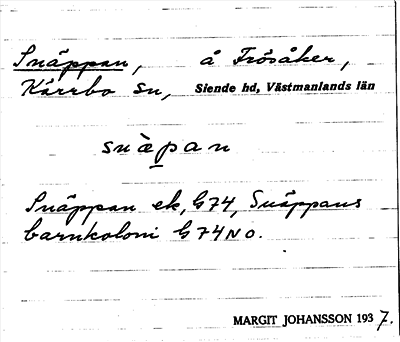 Snäppan, å Frösåker,
Kärrbo sn, Siende hd, Västmanlands län
snàpan
Snäppan ek, G74, Snäppans
barnkoloni G74NO.
MARGIT JOHANSSON 1937.